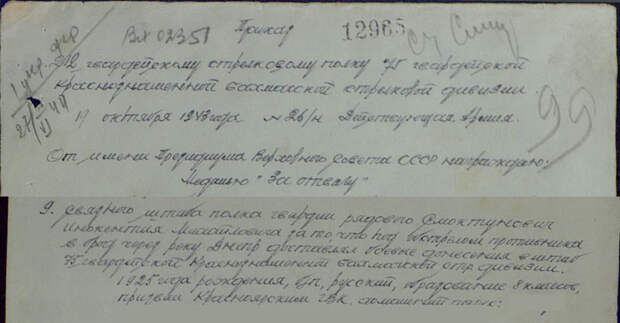 Вх 02351
Приказ
12965
1 укр фр
27/VI 44
99
212 гвардейскому стрелковому полку 75 гвардейской
Краснознаменной Бахмачской стрелковой дивизии.
октября 1943 года № 26/н Действующая Армия.
От имени Президиума Верховного Совета СССР награждаю:
Медалью "За отвагу"
9. Связного штаба полка гвардии рядового Смоктунович
Инокентия Михайловича за то, что под обстрелом противника
в брод через реку Днепр доставлял боевые донесения в штаб
75 гвардейской Краснознаменной Бахмачской стр. дивизии.
1925 года рождения, б/п, русский, образование 8 классов,
призван Красноярским ГВК. домашний адрес: